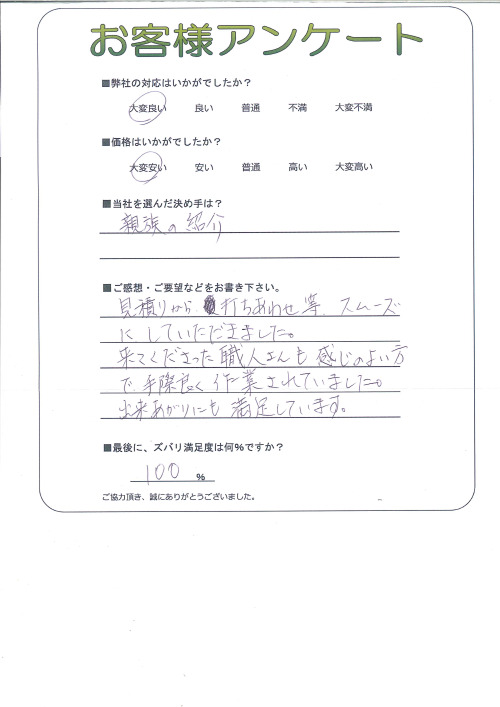 お客様アンケート
■弊社の対応はいかがでしたか？
大変良い 良い 普通 不満 大変不満
■価格はいかがでしたか？
大変安い 安い 普通 高い 大変高い
■当社を選んだ決め手は？
親族の紹介
■ご感想・ご要望などをお書き下さい。
見積りから打ちあわせ等、スムーズ
にしていただきました。
来てくださった職人さんも感じのよい方
で、手際良く作業されていました。
出来あがりにも満足しています。
■最後に、ズバリ満足度は何％ですか？
100 %
ご協力頂き、誠にありがとうございました。